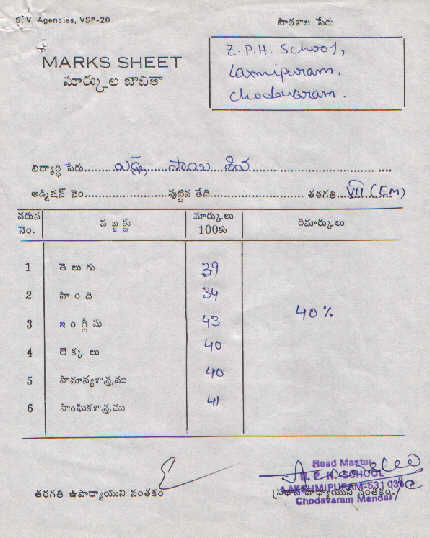 S.V. Agencies, VSP-20
పాఠశాల పేరు
MARKS SHEET
మార్కుల జాబితా
Z.P.H. School,
Laxmipuram,
Chodavaram.
విద్యార్థి పేరు సాయి శివ
అడ్మిషన్ నెం. పుట్టిన తేది తరగతి VII (EM)
వరుస నెం. సబ్జెక్టు మార్కులు 100కు రిమార్కులు
1 తెలుగు 39
2 హిందీ 34
3 ఇంగ్లీషు 43
40%
4 లెక్కలు 40
5 సామాన్యశాస్త్రము 40
6 సాంఘికశాస్త్రము 41
Head Master
Z.P.H. SCHOOL
LAKSHMIPURAM-531036
Chodavaram Mandal
తరగతి ఉపాధ్యాయుని సంతకం